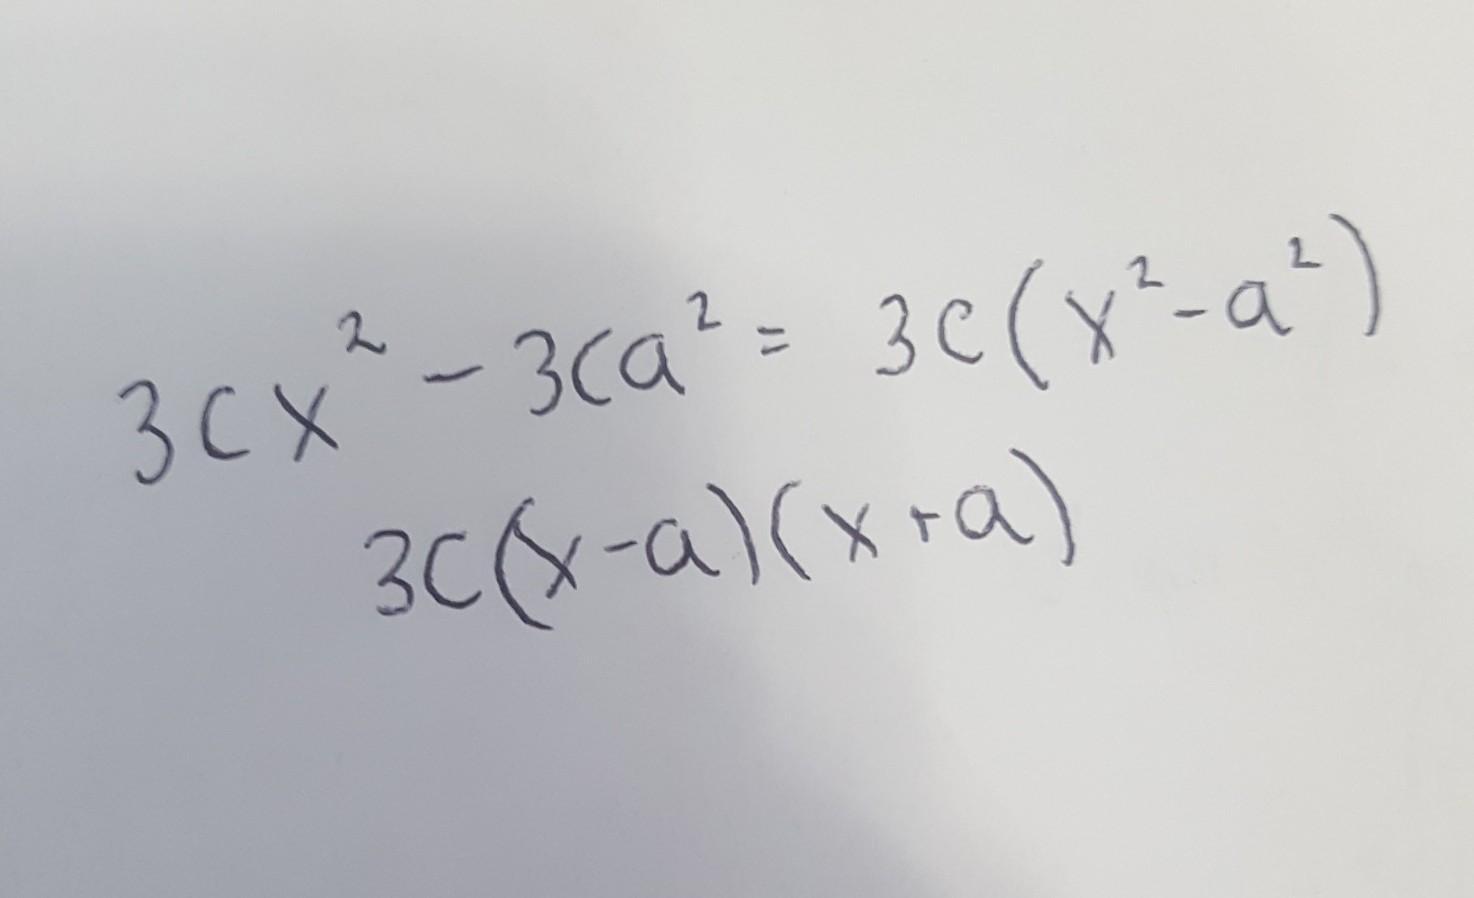 3cx² - 3ca² = 3c(x² - a²)
3c(x - a)(x + a)